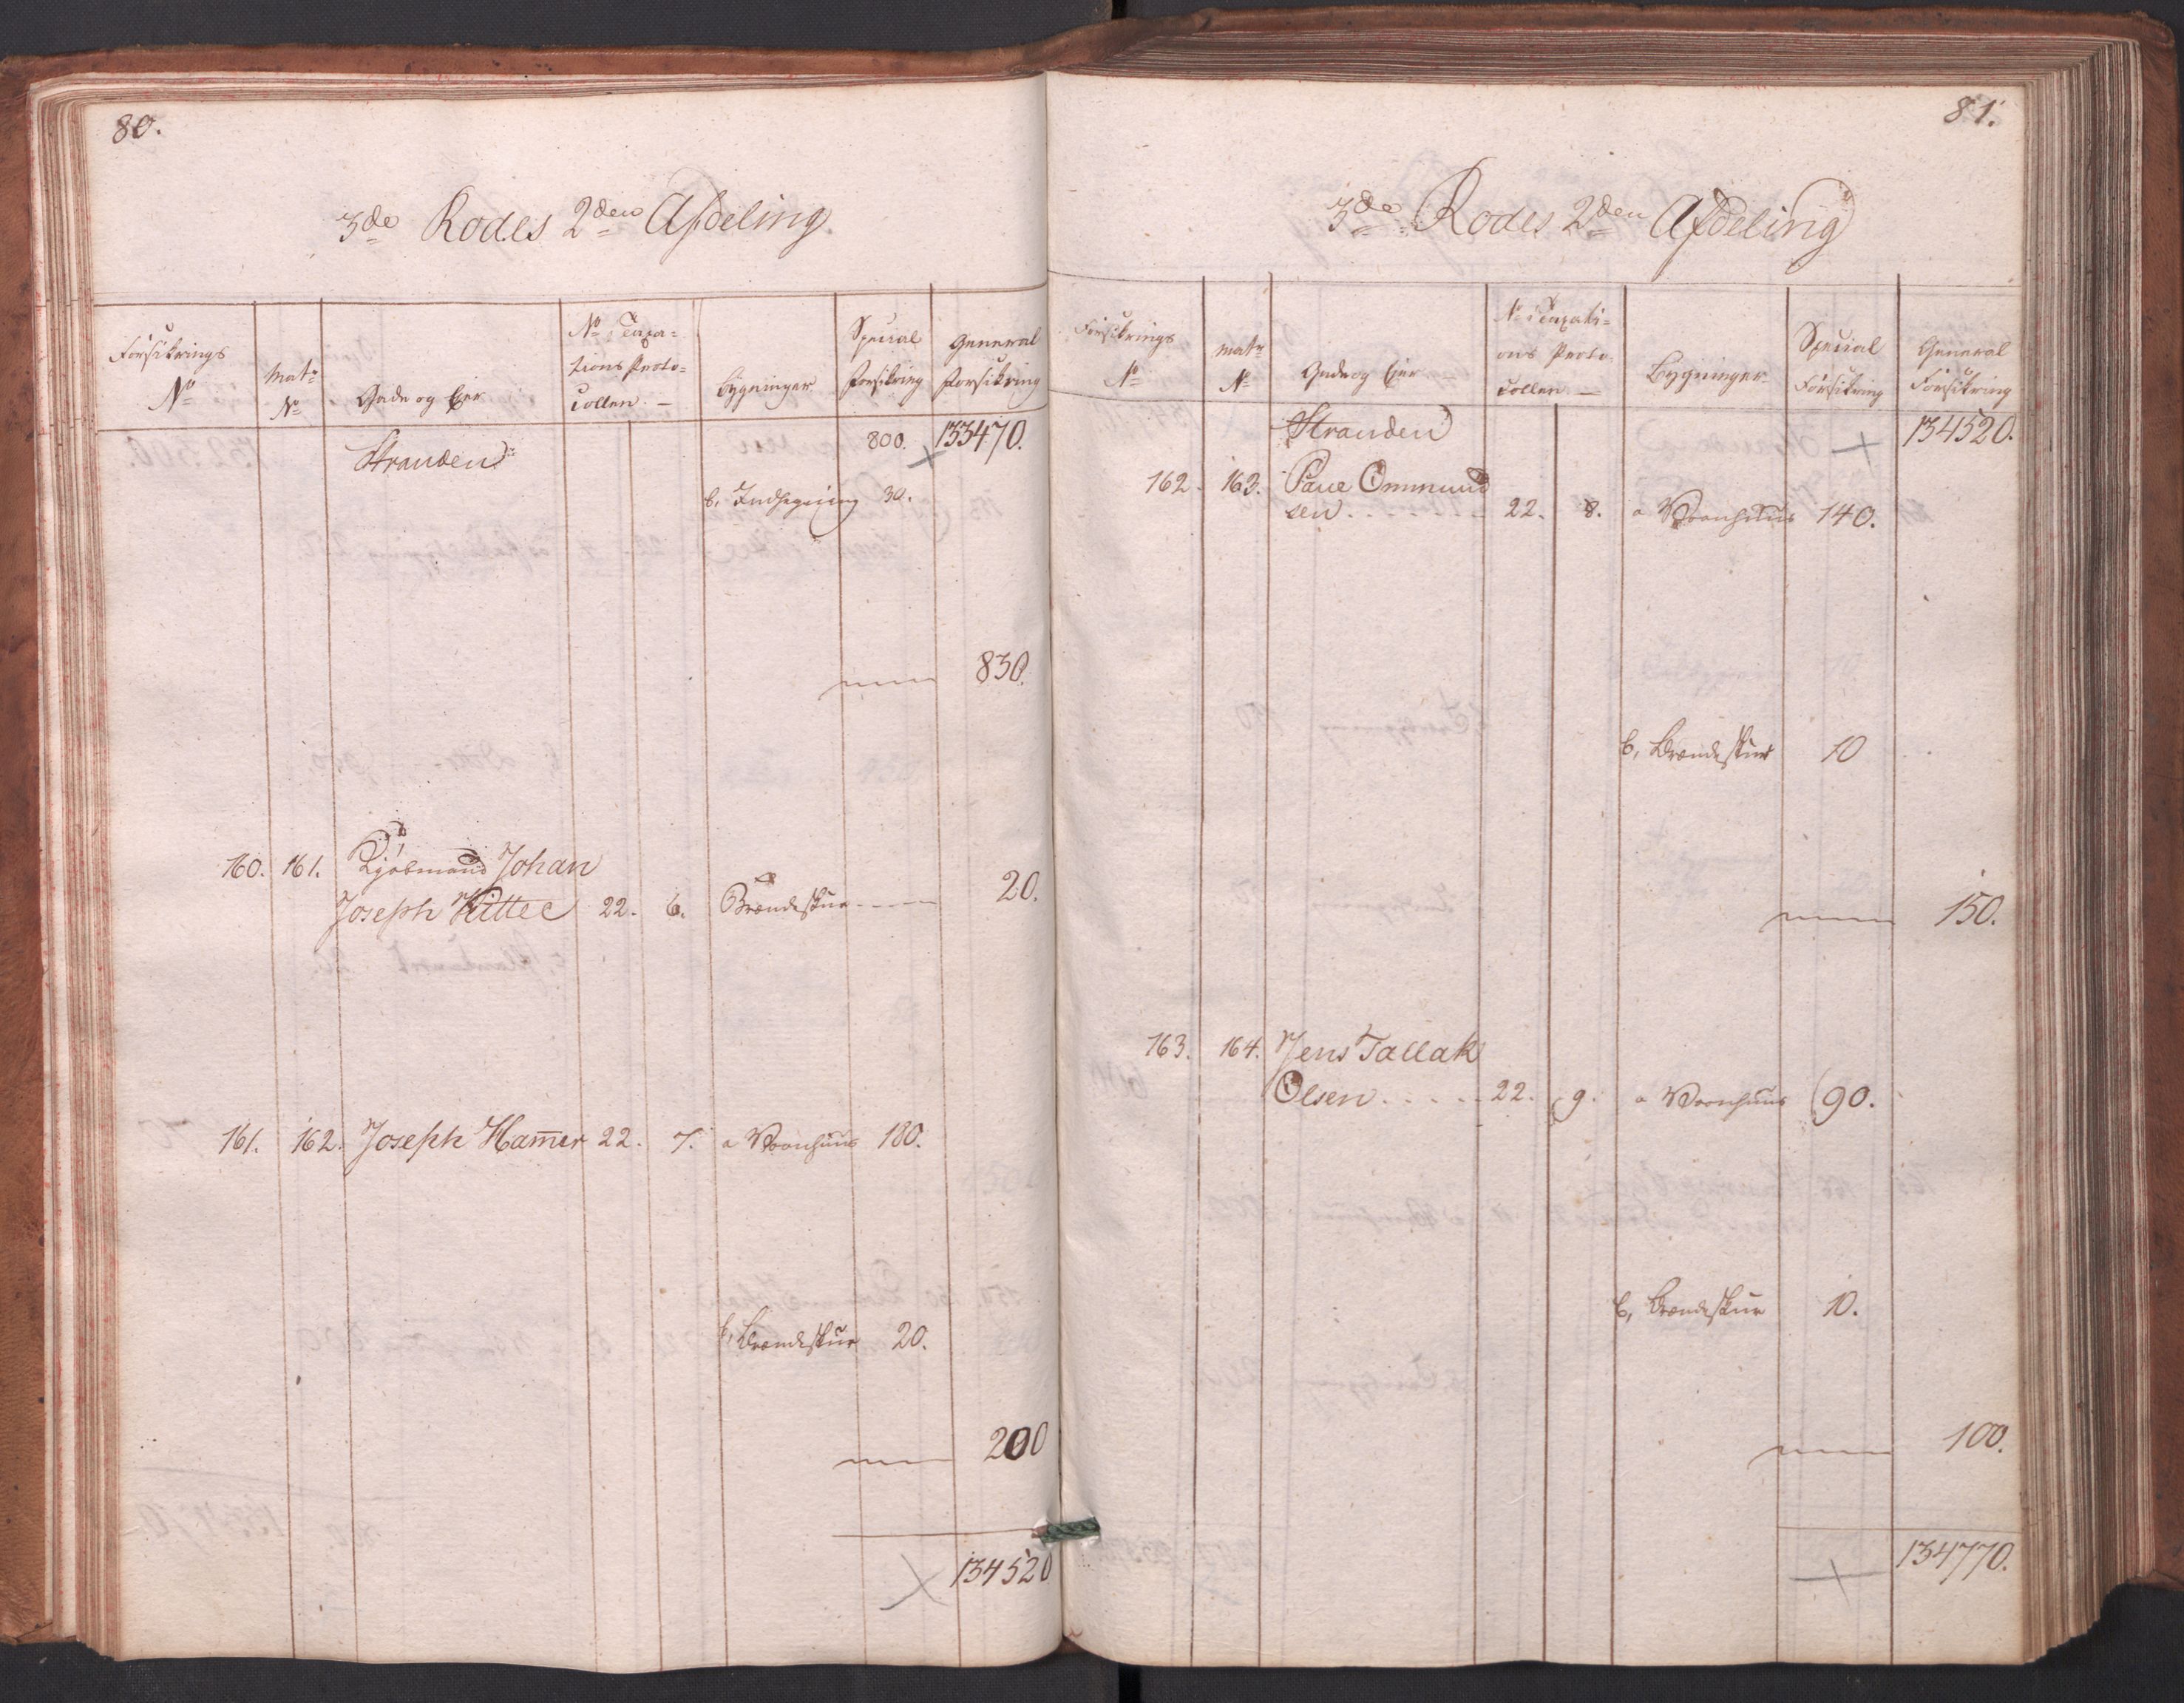 80.
3de Rodes 2den Afdeling.
Forsikrings No
Matr No
Gade og Eier
No i Taxations Protocollen
Bygninger
Special Forsikring
General Forsikring
Stranden 800. 133470.
b, Indhegning 30.
830.
160. 161. Kjøbmand Johan
Joseph 22. 6. Brændeskur 20.
161. 162. Joseph Ham̄er 22. 7. a Vaanhuus 180.
b, Brændeskur 20.
200
134520
81.
3de Rodes 2den Afdeling
Forsikrings No
Matr No
Gade og Eier
No i Taxations Protocollen
Bygninger
Special Forsikring
General Forsikring
Stranden 134520.
162. 163. Ommund
sen 22. 8. a Vaanhuus 140.
b, Brændeskur 10
150.
163. 164. Jens Tallak
Olsen 22. 9. a Vaanhuus 90.
b, Brændeskur 10.
100.
134770.